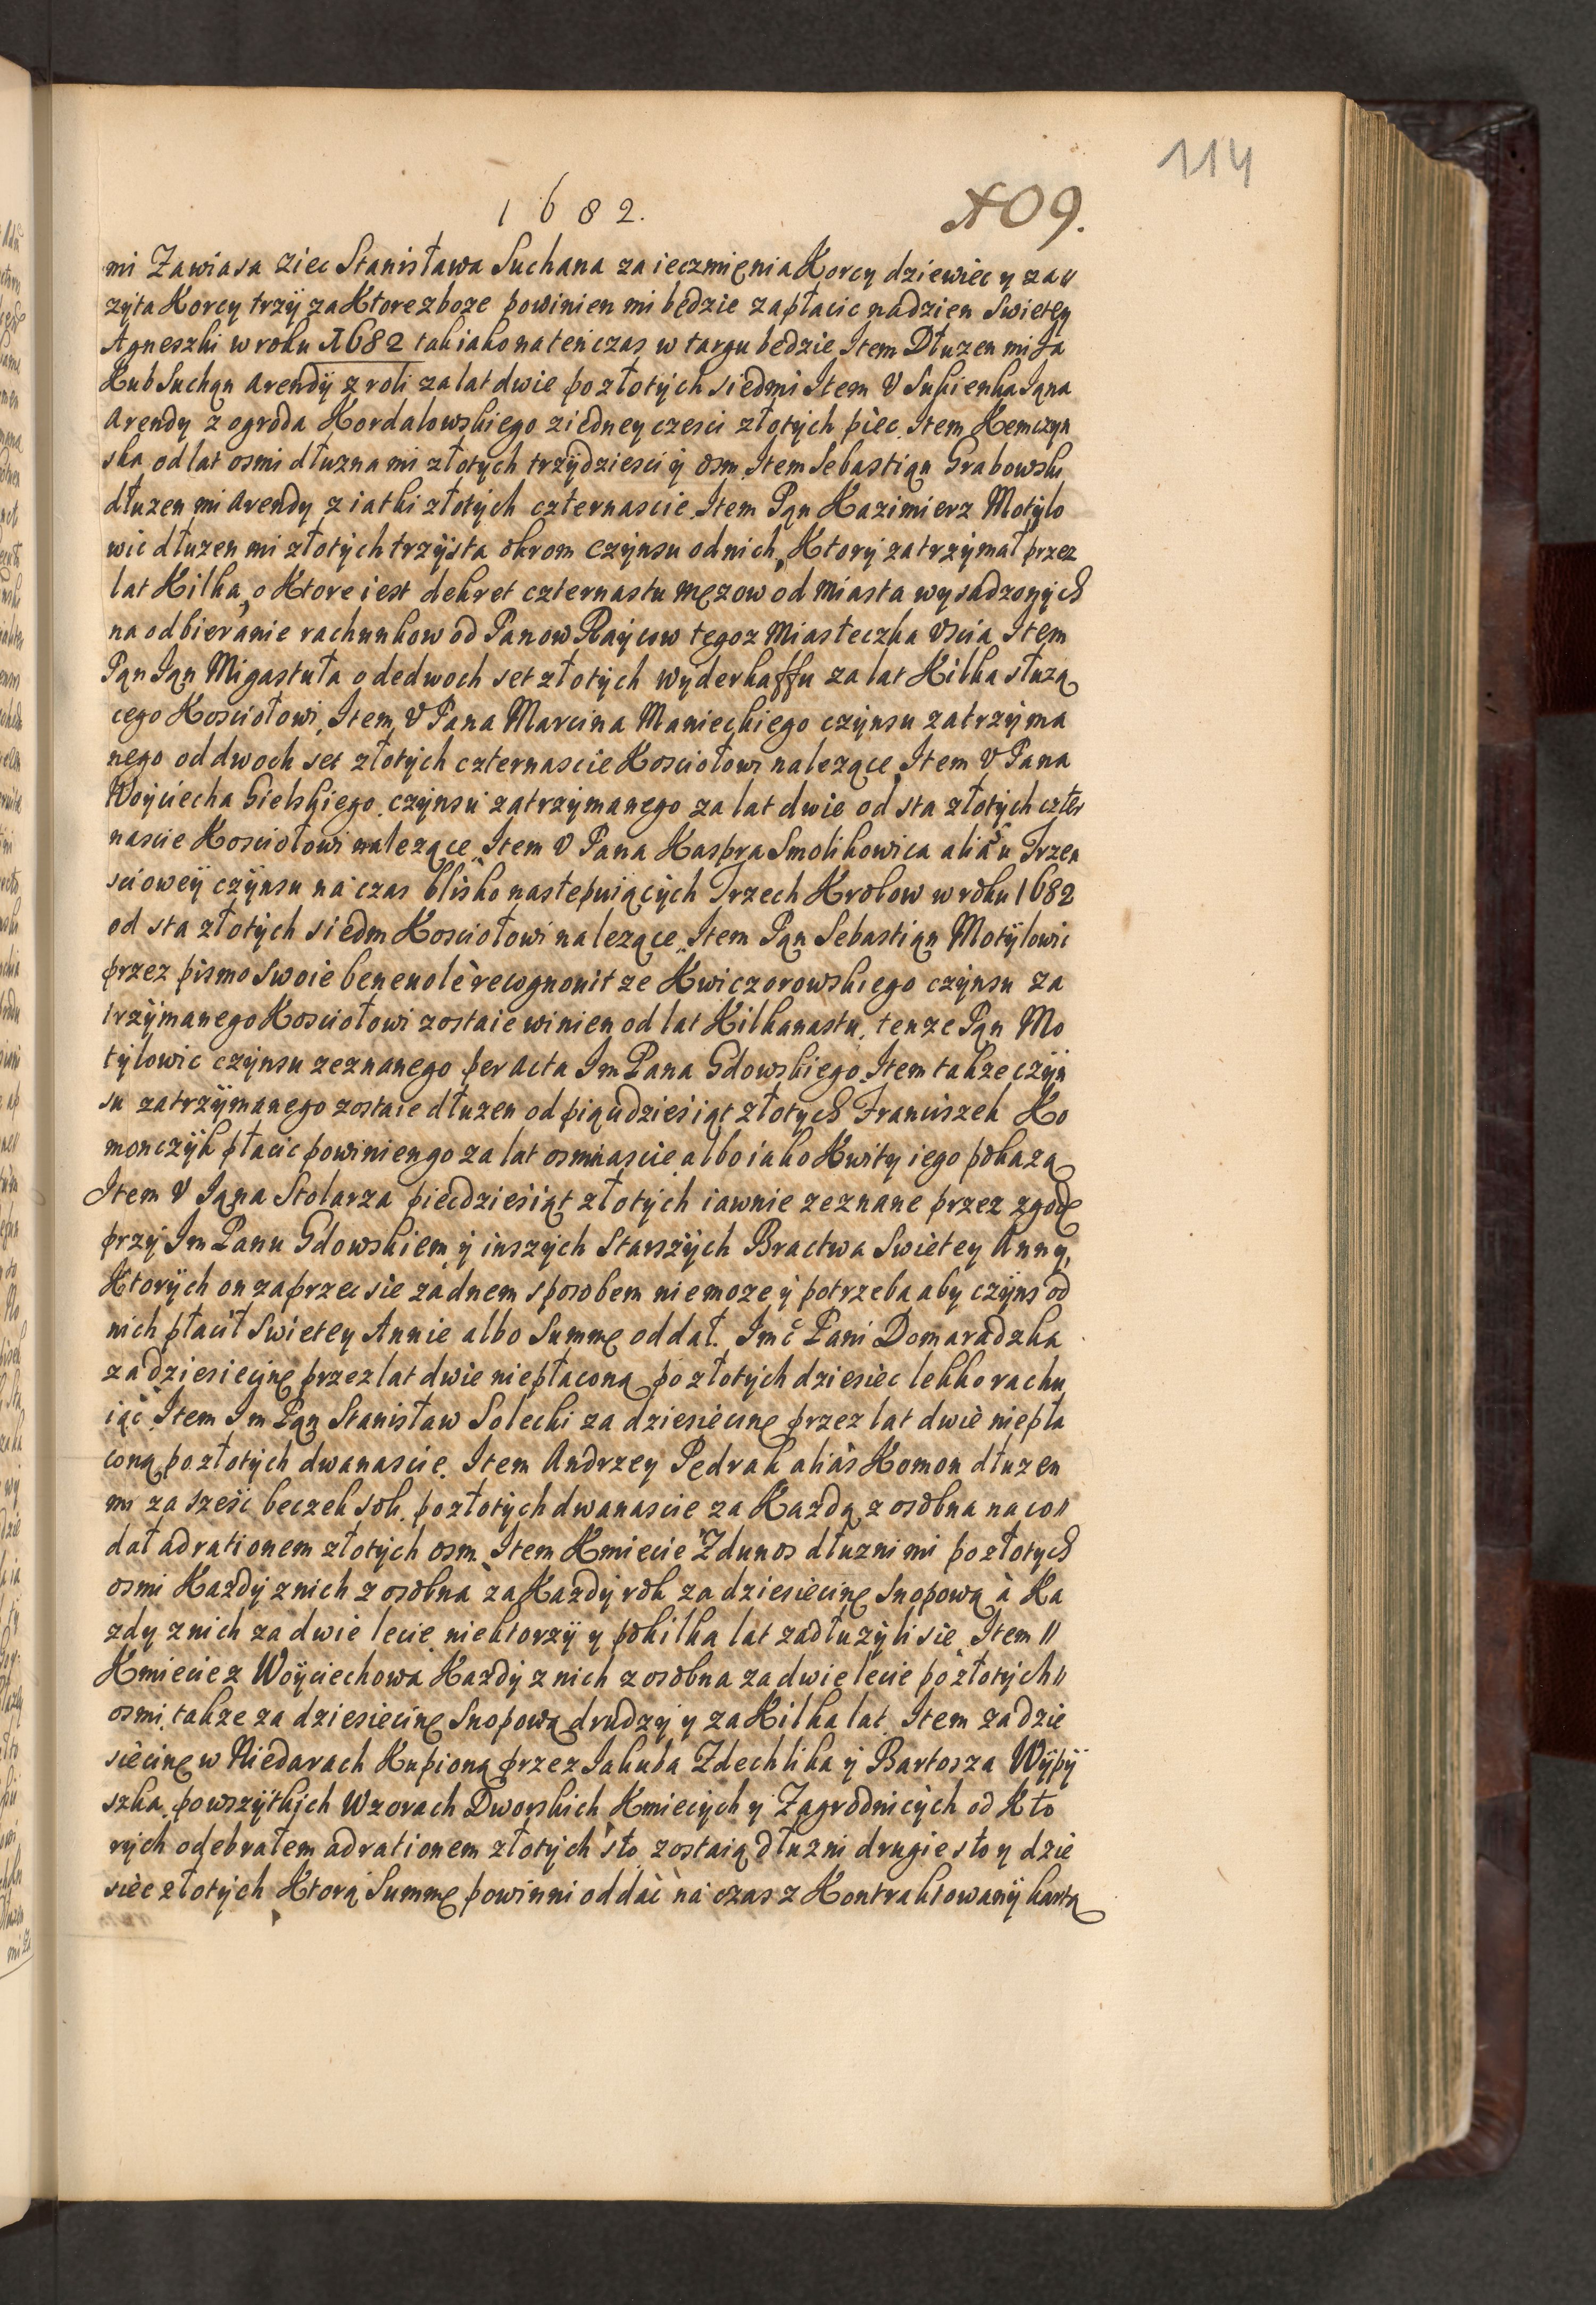 114
1682. 109.
mi Zawiasa ziec Stanisława Suchana za ieczmięnia Korcy dziewiec y za〃
zyta Korcy trzÿ za Ktore zboze powinien mi bẹdzie zapłacic nadzien Swietey
Agneszki w roku 1682 tak iako naten czas w targu bedzie Item Dłuzen mi Ja
Kub Suchąn Arendÿ z roli za lat dwie po złotÿch siedmi Item V Sukienka Iąna
Arendy z ogroda Kordalowskiego ziedney czesci złotÿch pięc. Item Kemczyn
ska od lat osmi dłuzna mi złotÿch trzÿdziesci ÿ osm. Item Sebastiąn Grabowski
dłuzen mi Arendy z iatki złotÿch czternascie. Item Pąn Kazimierz Motÿlo
wic dłuzen mi złotÿch trzÿsta okrom czÿnsu od nich, Ktorÿ zatrzÿmał przez
lat Kilka, o Ktore iest dekret czternastu męzow od Miasta wysadzonÿch
na odbieranie rachunkow od Panow Raÿcow tegoz Miasteczka Vscia. Item
Pąn Iąn Migastuła o dedwoch set złotÿch wÿderkaffu za lat Kilka słuzą
cego Kosciołowi, Item V Pana Marcina Manieckiego czÿnsu zatrzÿma
nego od dwoch set złotÿch czternascie Kosciołowi nalezące. Item V Pana
Woÿciecha Gielskiego czÿnsu zatrzÿmanego za lat dwie od sta złotÿch czter
nascie Kosciołowi nalezące. Item V Pana Kaspra Smolikowica aliàs u Trzen
scioweÿ czÿnsu na czas blisko nastepuiącÿch Trzech Krolow w roku 1682
od sta złotÿch siedm Kosciołowi nalezące. Item Pąn Sebastiąn Motÿlowic
przez pismo swoie beneuolè recognouit ze Kwiczorowskiego czÿnsu za
trzÿmanego Kosciołowi zostaie winien od lat Kilkanastu, tenze Pąn Mo
tÿlowic czÿnsu zeznanego per Acta Im Pana Gdowskiego. Item takze czÿn
su zatrzÿmanego zostaie dłuzen od piącdziesiąt złotÿch Franciszek Ko
monczÿk płacic powinien go za lat osmnascie albo iako Kwitÿ iego pokazą
Item V Iąna Stolarza piecdziesiąt złotÿch iawnie zeznane przez zgodę
przÿ Im Panu Gdowskiem ÿ inszÿch Starszÿch Bractwa Swietey Anny,
Ktorÿch on zaprzec sie zadnem sposobem niemoze ÿ potrzeba aby czÿns od
nich płacił Swietey Annie albo Summę oddał. Imc Pani Domaradzka
za dziesiecÿnę przez lat dwie niepłaconą po złotÿch dziesiec lekko rachu
iąc. Item Im Pąn Stanisław Solecki za dziesiecinę przez lat dwie niepła
coną po złotÿch dwanascie. Item Andrzey Pędrak aliàs Komon dłuzen
mi za szesc beczek soli po złotÿch dwanascie za Kazdą z osobna na co〃
dał ad rationem złotÿch osm. Item Kmiecie Zdunos dłuzni mi po złotÿch
osmi Kazdÿ z nich z osobna za Kazdÿ rok za dziesiecinę Snopową à Ka
zdy z nich za dwie lecie niektorzÿ y pokilka lat zadłuzÿli sie. Item〃
Kmiecie z Woÿciechowa Kazdÿ z nich z osobna za dwie lecie po złotÿch〃
osmi takze za dziesiecinę Snopową drudzÿ y za Kilka lat. Item za dzie
siecinę w Niedarach Kupioną przez Iakuba Zdechlika ÿ Bartosza Wÿpÿ
szka po wszÿtkich Wzorach Dworskich Kmiecÿch y Zagrodnicÿch od Kto
rÿch odebrałem ad rationem złotÿch sto, zostaią dłuzni drugie sto y dzie
siec złotÿch Ktorą Summę powinni oddac na czas z Kontraktowanÿ kartą